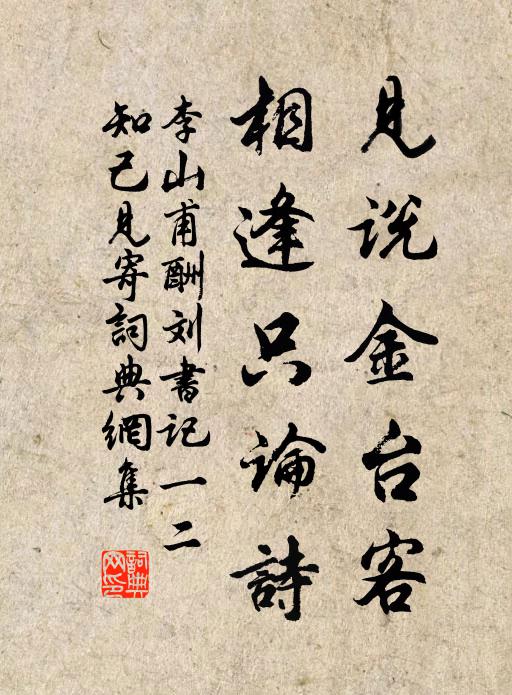 見说金台客
相逢只論詩
李山甫酬刘書记一二
知己見寄詞典網集
詞典网印